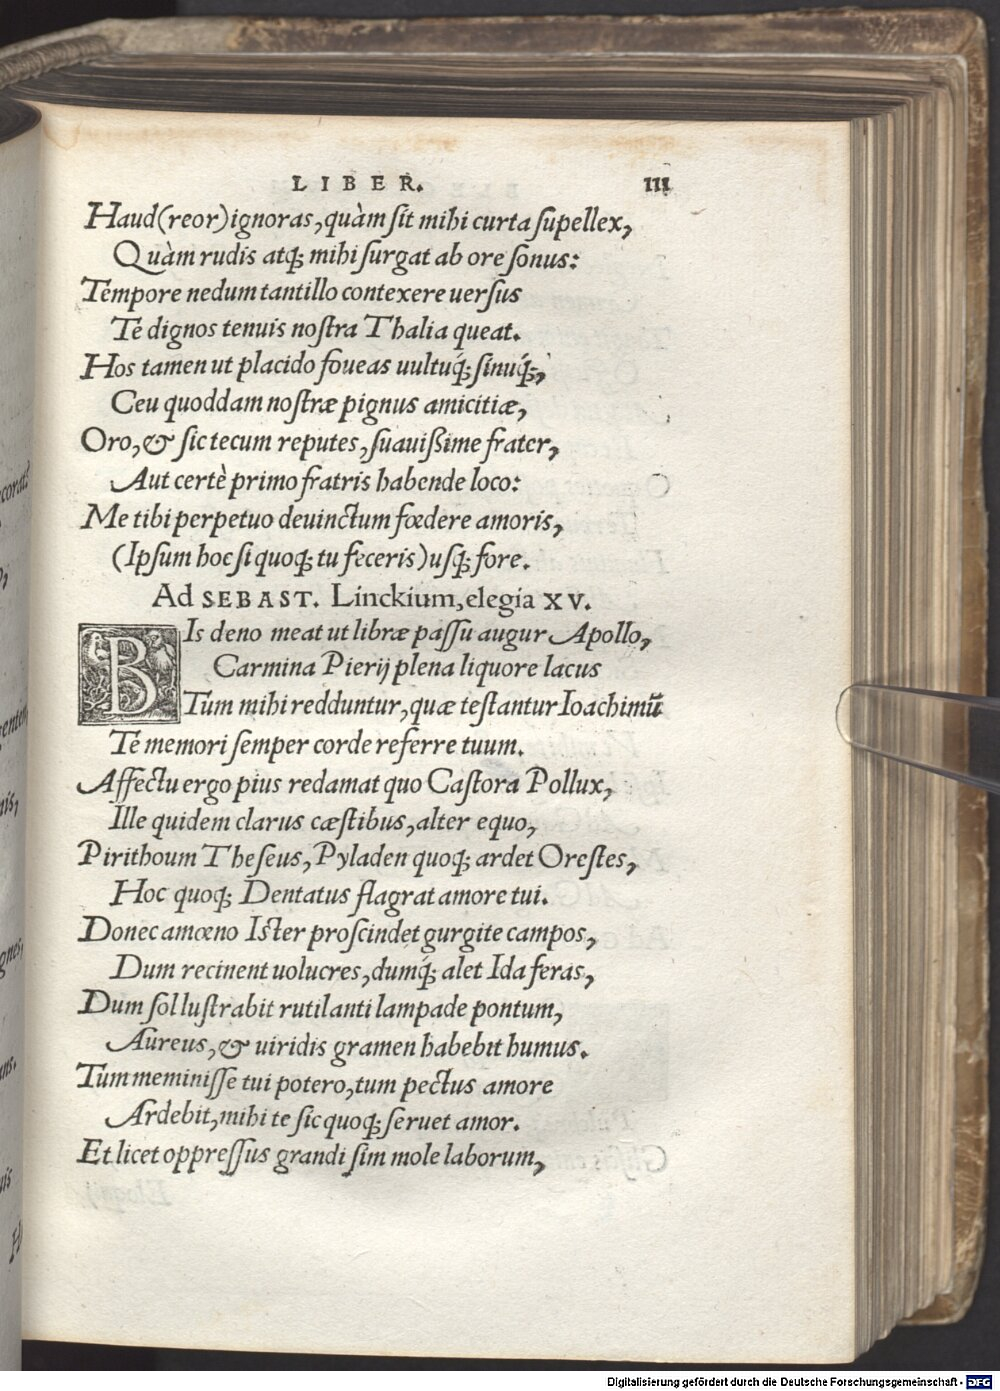 LIBER. 111
Haud(reor)ignoras, quàm ſit mihi curta ſupellex,
Quàm rudis atq; mihi ſurgat ab ore ſonus:
Tempore nedum tantillo contexere uerſus
Te dignos tenuis noſtra Thalia queat.
Hos tamen ut placido foueas uultuq́; ſinuq́;,
Ceu quoddam noſtræ pignus amicitiæ,
Oro, & ſic tecum reputes, ſuauißime frater,
Aut certè primo fratris habende loco:
Me tibi perpetuo deuinctum fœdere amoris,
(Ipſum hoc ſi quoq; tu feceris)uſq; fore.
Ad SEBAST. Linckium, elegia XV.
BIs deno meat ut libræ paſſu augur Apollo,
Carmina Pierij plena liquore lacus
Tum mihi redduntur, quæ teſtantur Ioachimū
Te memori ſemper corde referre tuum.
Affectu ergo pius redamat quo Caſtora Pollux,
Ille quidem clarus cæſtibus, alter equo,
Pirithoum Theſeus, Pyladen quoq; ardet Oreſtes,
Hoc quoq; Dentatus flagrat amore tui.
Donec amœno Iſter proſcindet gurgite campos,
Dum recinent uolucres, dumq́; alet Ida feras,
Dum ſol luſtrabit rutilanti lampade pontum,
Aureus, & uiridis gramen habebit humus.
Tum meminiſſe tui potero, tum pectus amore
Ardebit, mihi te ſic quoq; ſeruet amor.
Et licet oppreſſus grandi ſim mole laborum,
Digitalisierung gefördert durch die Deutsche Forschungsgemeinschaft - DFG